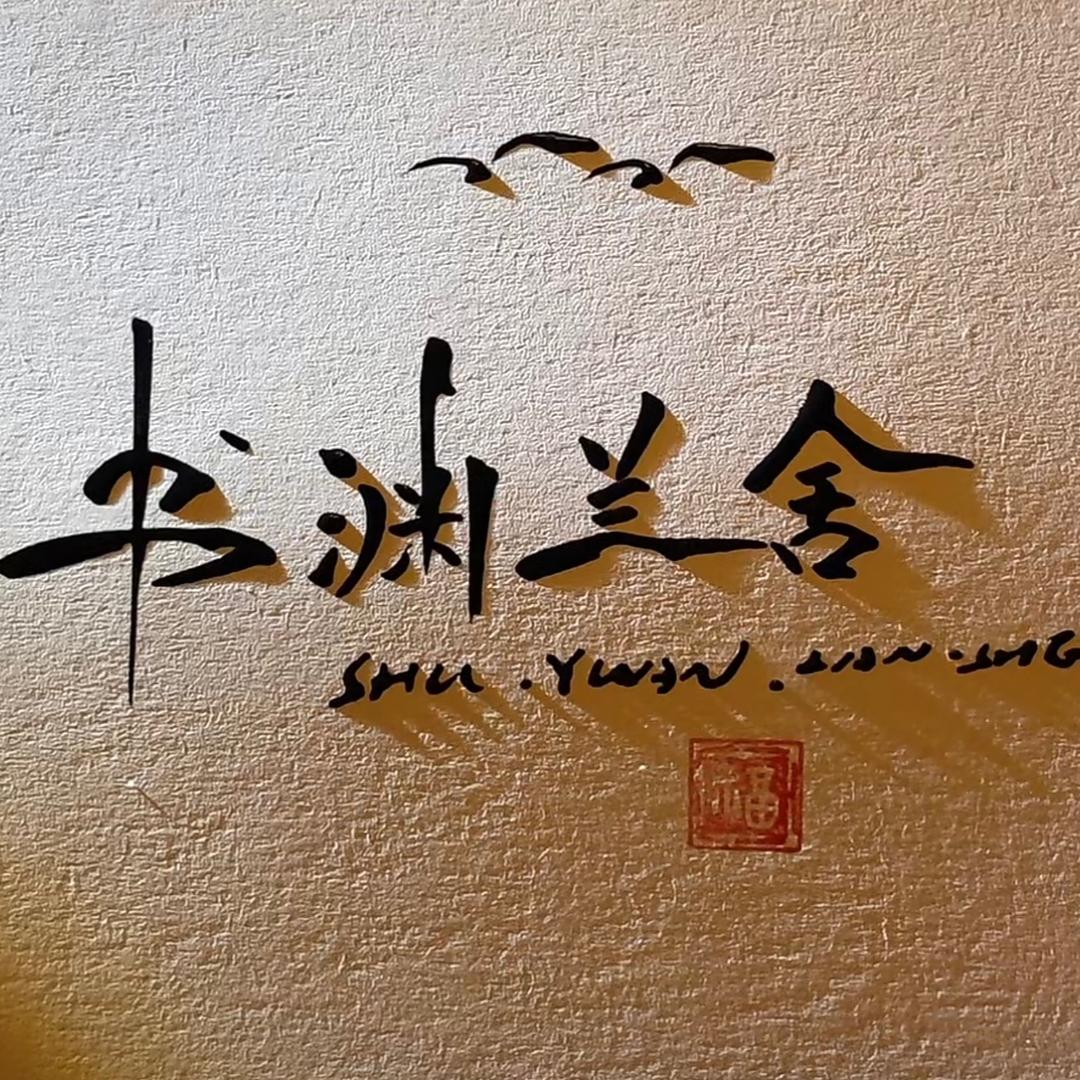 书渊兰舍
SHU · YUAN · LAN · SHE
福